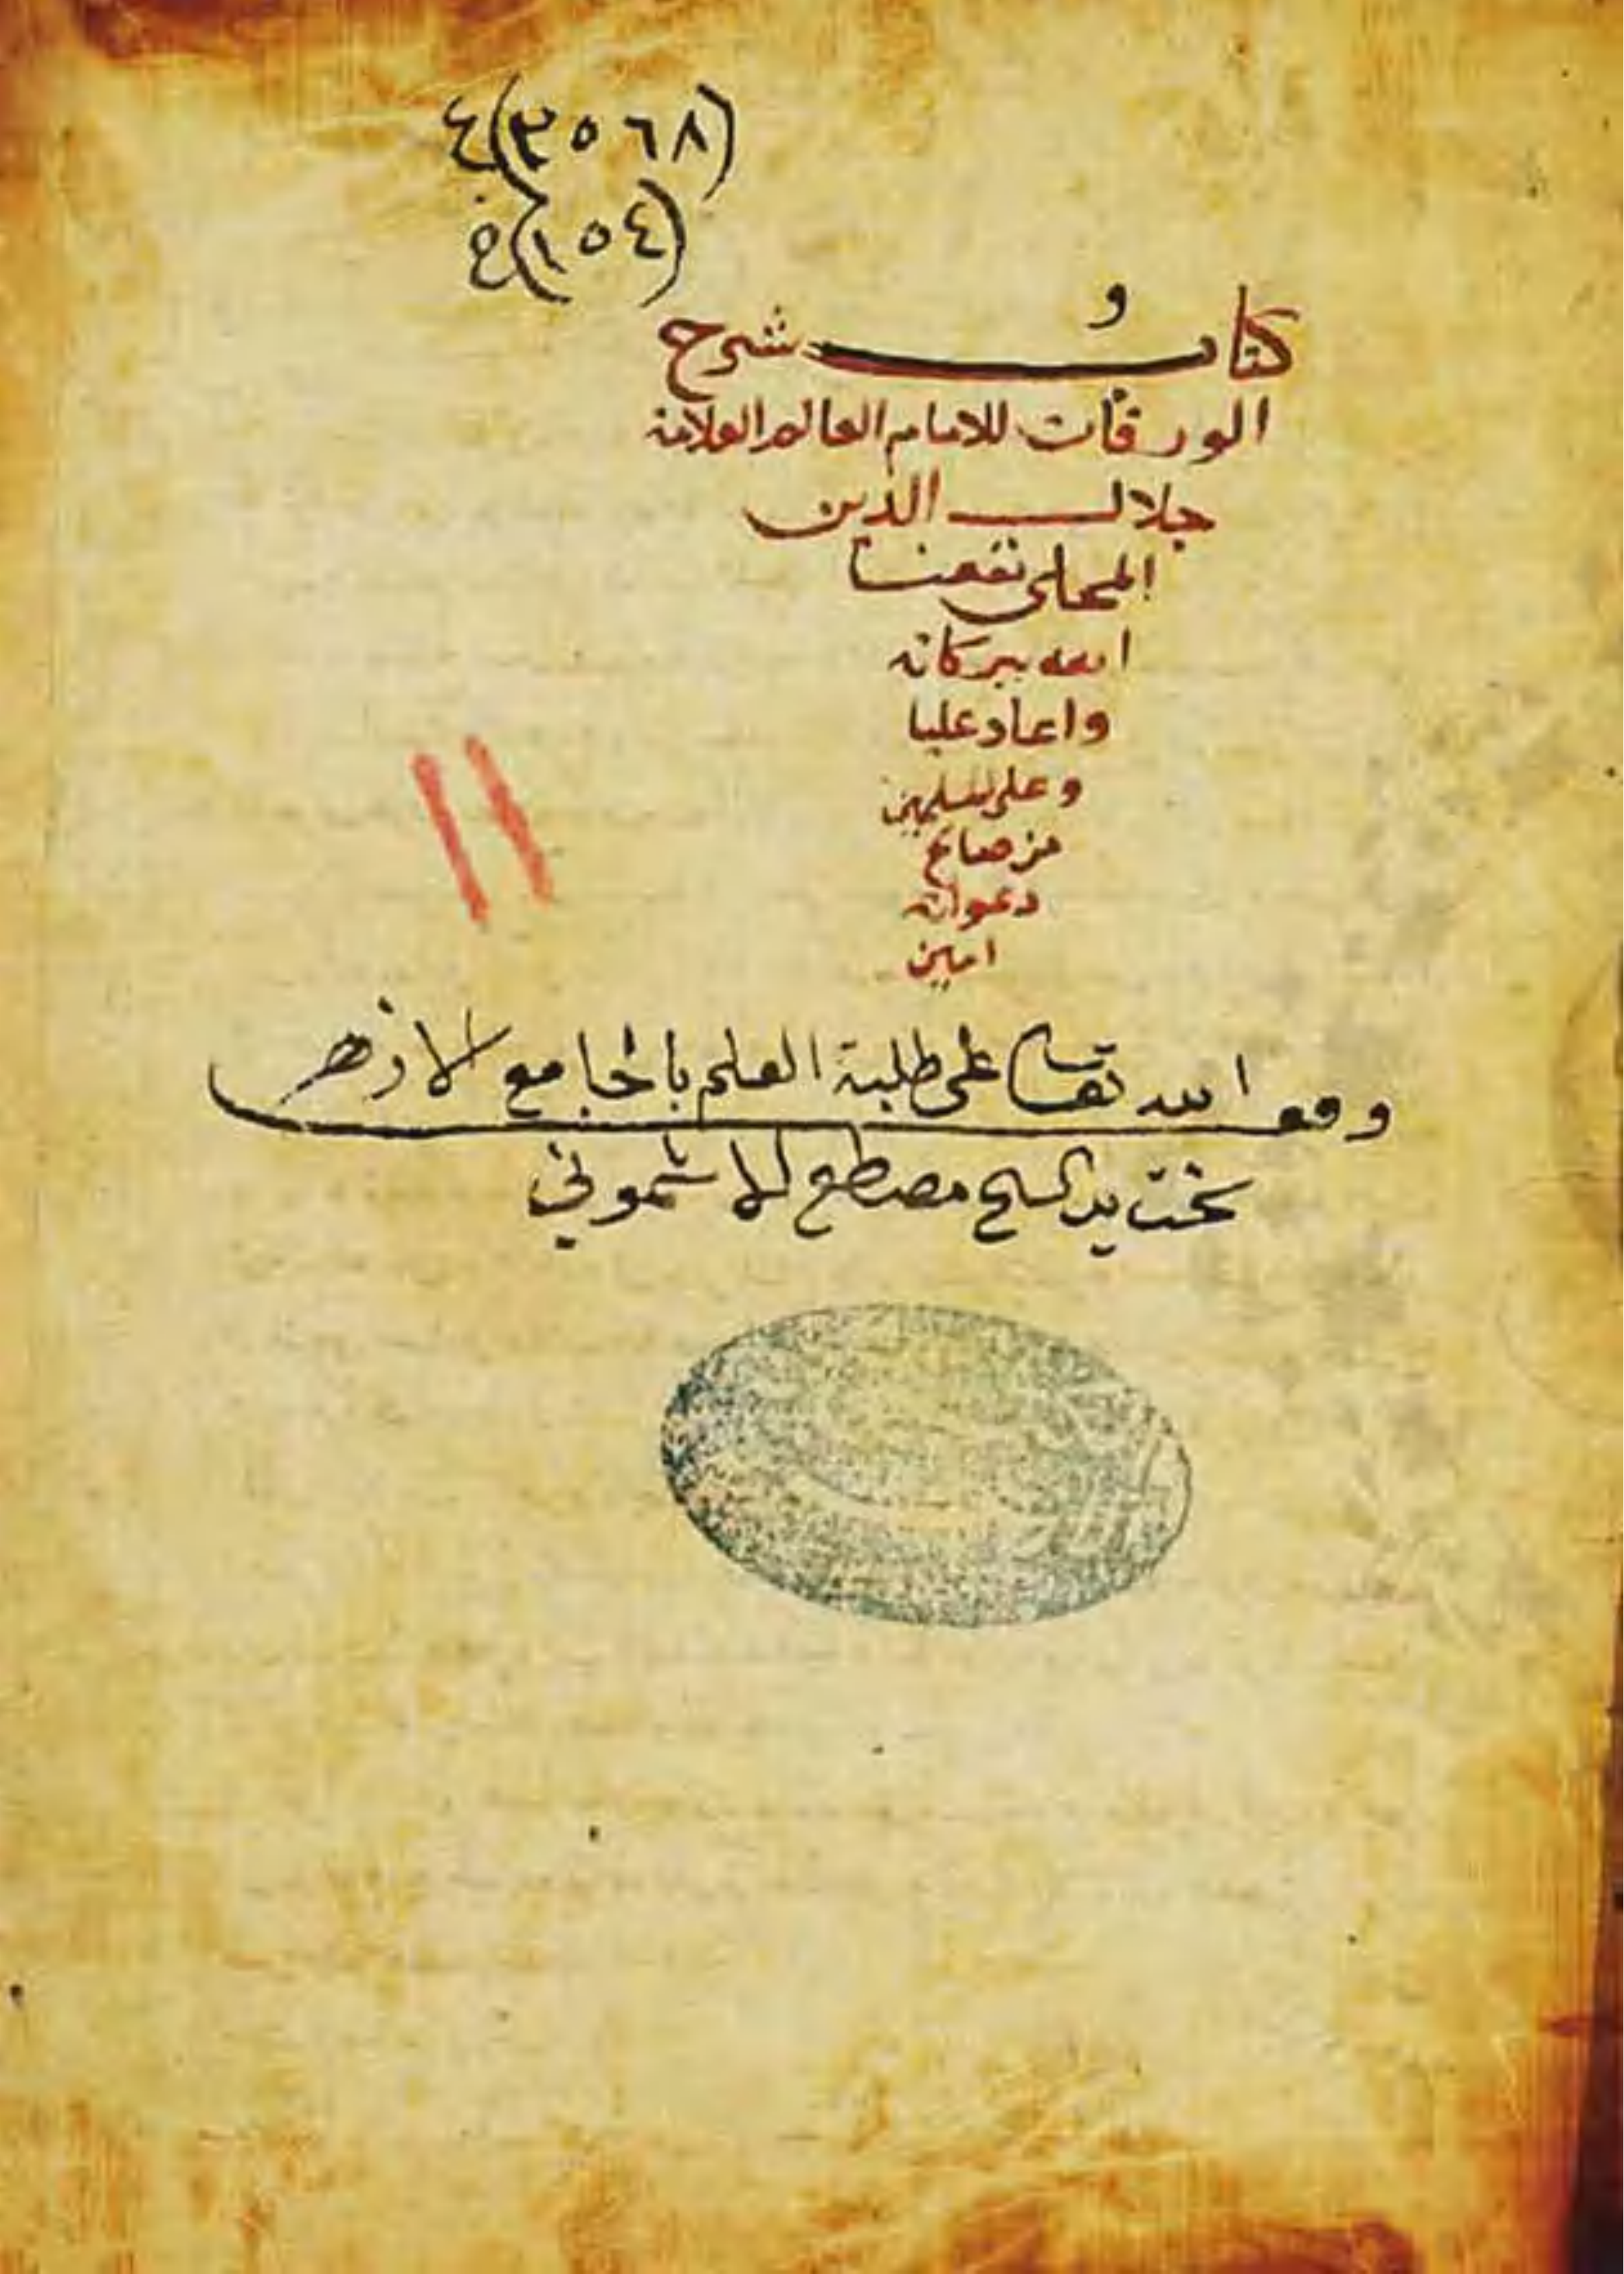 (٣٥٦٨) ع
(١٥٤) ع
و
كتاب شرح
الورقات للامام العالم العلامة
جلال الدين
المحلي نفعنا
الله ببركاته
واعاد علينا
وعلى المسلمين
من صالح
دعواته
امين
وقف لله تعا على طلبة العلم بالجامع الازهر
تحت يد الشيخ مصطفى الاشموني